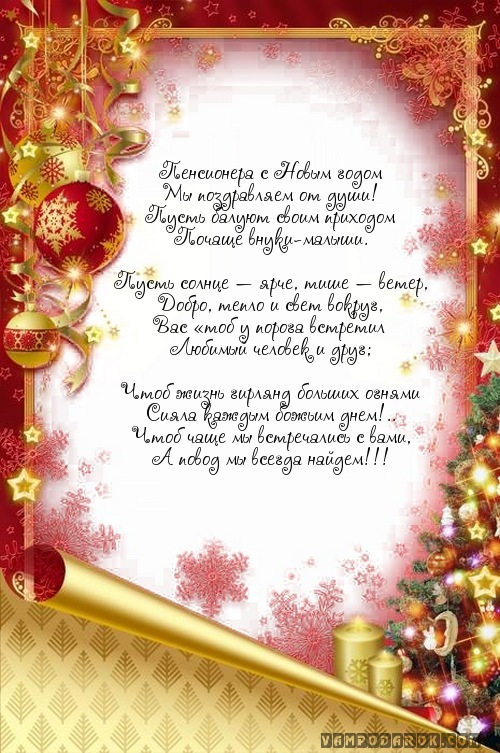 Пенсионера с Новым годом
Мы поздравляем от души!
Пусть балуют своим приходом
Почаще внуки-малыши.
Пусть солнце — ярче, тише — ветер,
Добро, тепло и свет вокруг,
Вас «тоб у порога встретил
Любимый человек и друг;
Чтоб жизнь гирлянд больших огнями
Сияла каждым божьим днем!..
Чтоб чаще мы встречались с вами,
А повод мы всегда найдем!!!
VAMPODAROK.COM